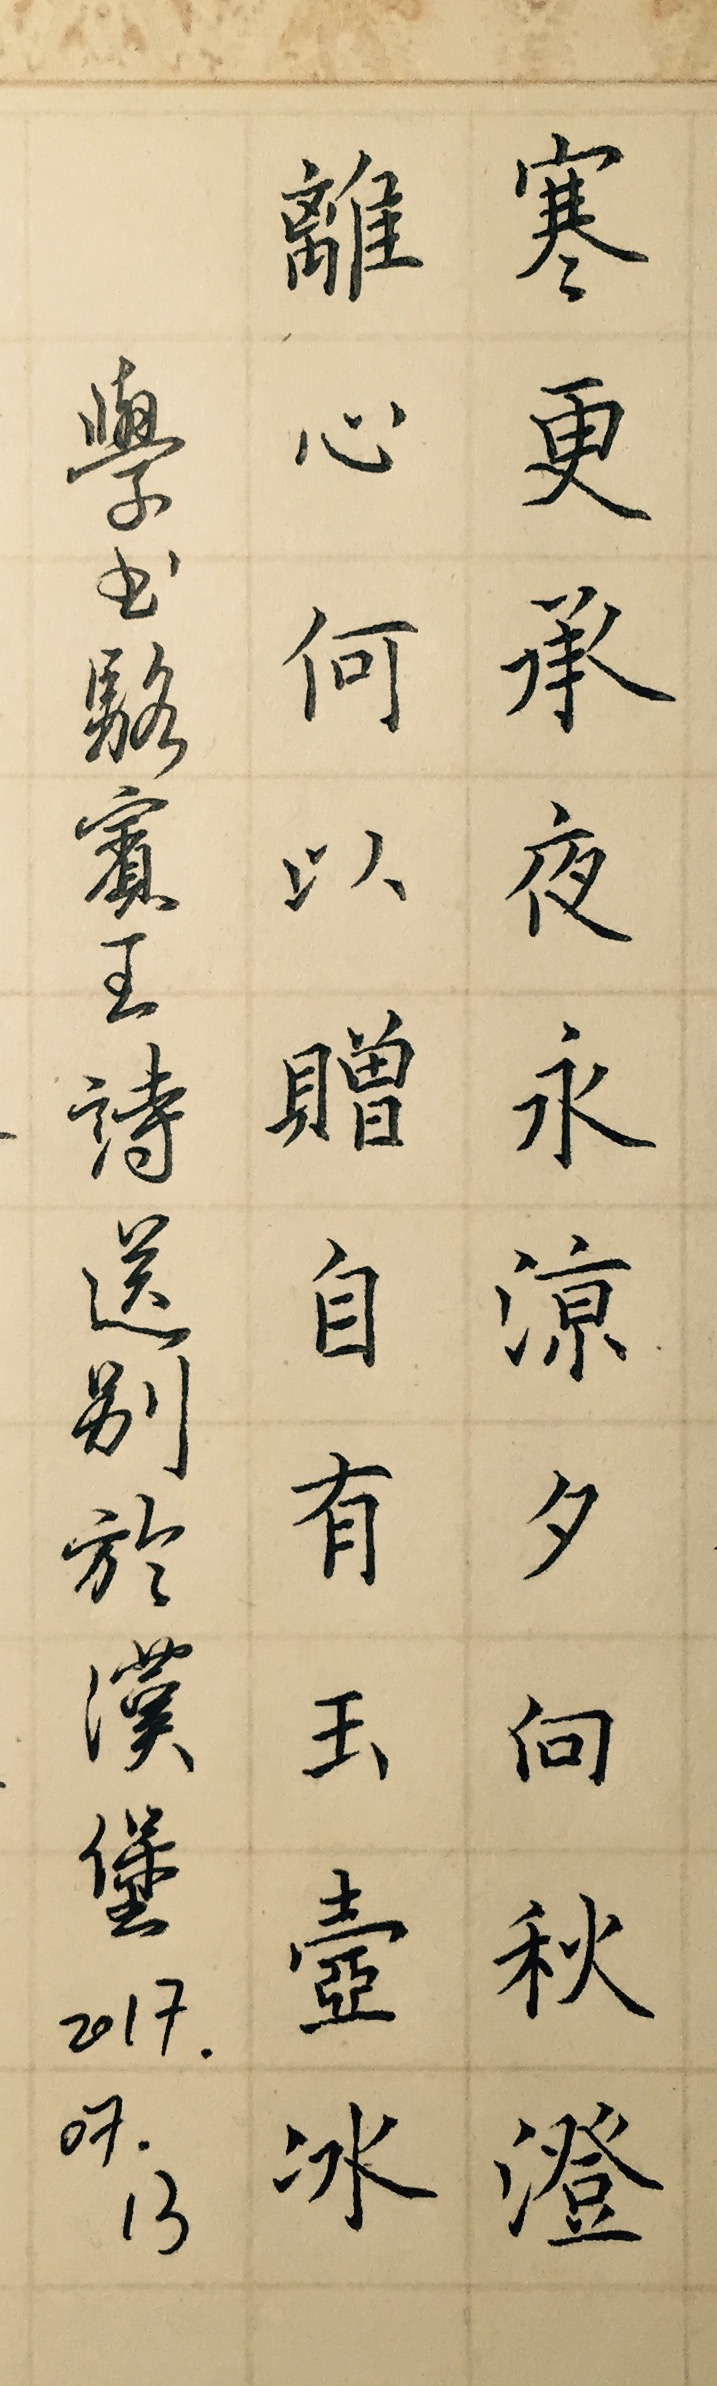 寒更承夜永涼夕向秋澄
離心何以贈自有玉壺冰
學书駱賓王詩送别於漢堡2017.
07.
13